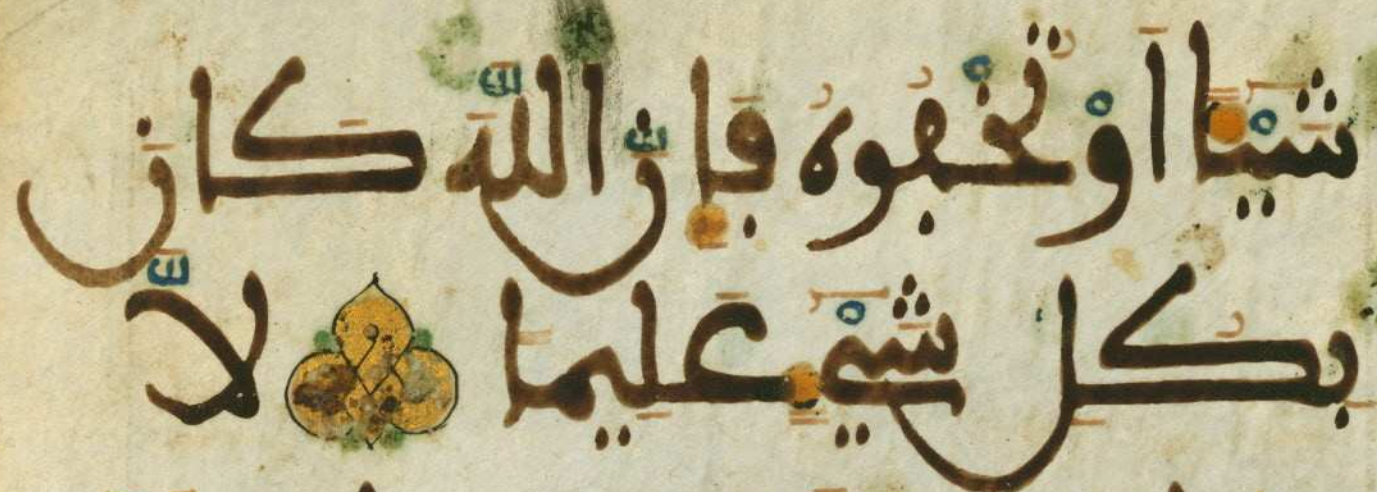 شَيْـًٔا اَوْ تُخْفُوهُ فَإِنَّ اَللَّهَ كَانَ
بِكُلِّ شَےْءٍ عَلِيماٗ لَّا